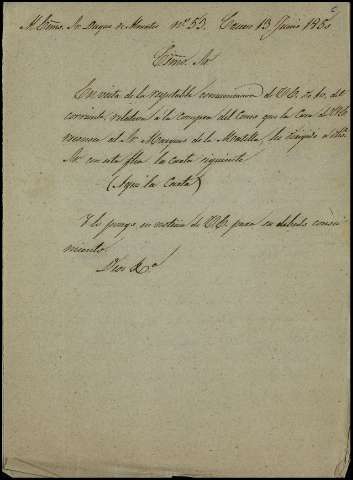 Al Exmo. Sr. Duque de nº 53. 13 Junio 185
Exmo. Sr.
En vista de la respetable comunicacion de V.E. de 10 del
corriente, relativa a la compra del que la Casa de V.E.
al Sr. Marques de la Motilla, he dirigido a dho.
Sr. con esta fha. la carta siguiente
(Aqui la Carta)
Y lo pongo en noticia de V.E. para su debido conoci-
miento.
Dios &ª